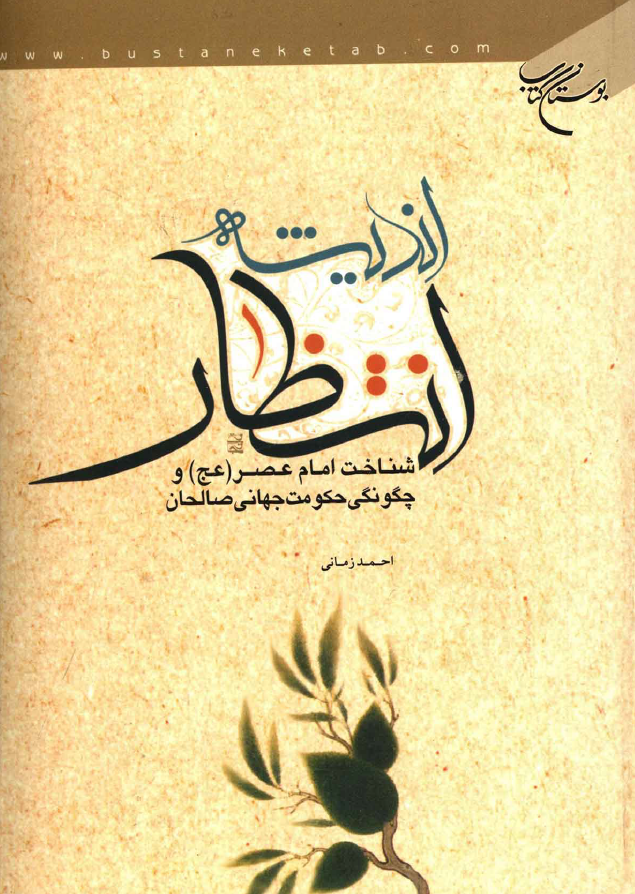 www.bustaneketab.com
بوستان کتاب
اندیشه
انتظار
شناخت امام عصر(عج) و
چگونگی حکومت جهانی صالحان
احمد زمانی